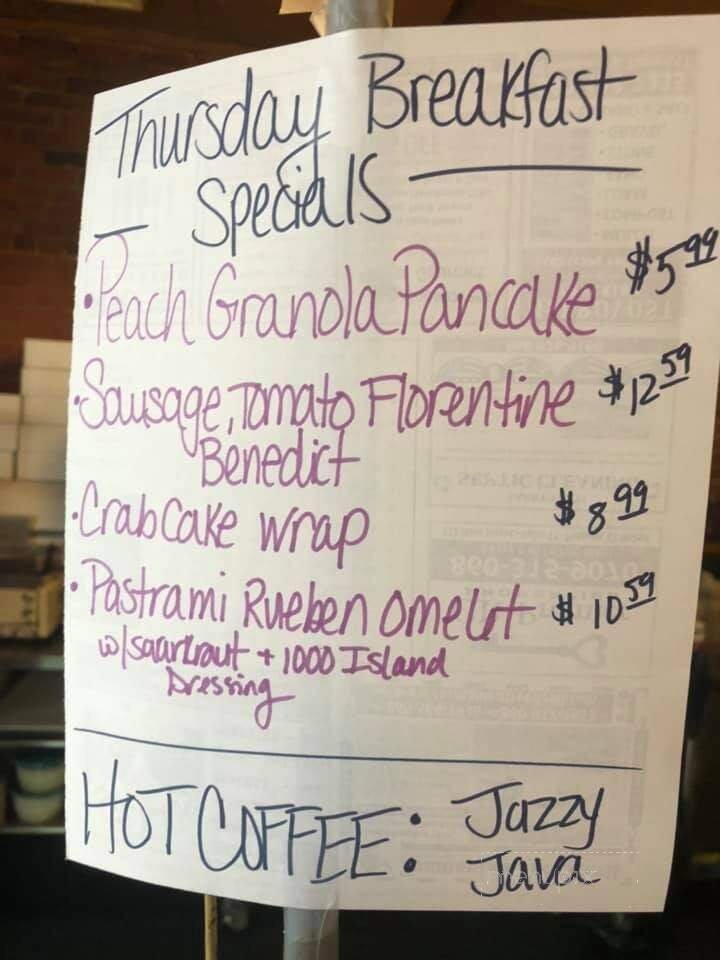 Thursday Breakfast
Specials
• Peach Granola Pancake $5.99
• Sausage, Tomato Florentine $12.59
Benedict
• Crab Cake wrap $8.99
• Pastrami Rueben omelet $10.59
w/ saarkraut + 1000 Island
Dressing
HOT COFFEE: Jazzy
Java
menupix